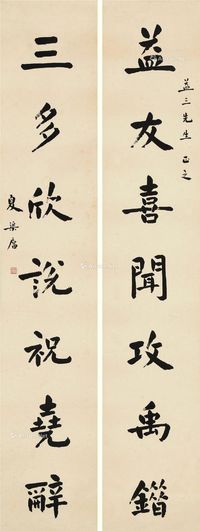 益三先生正之
益友喜聞攻禹錯
三多欣說祝堯辭
夏壽康